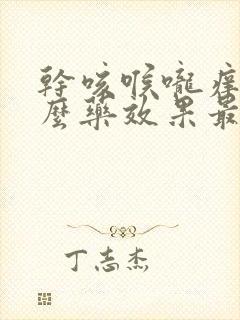 幹咳喉嚨癢
麼藥效果最
丁志杰